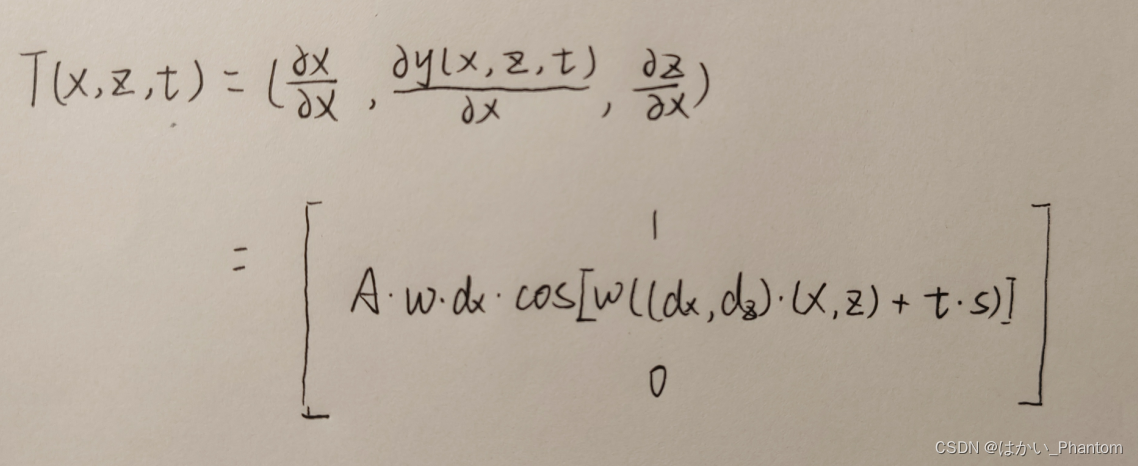 T(x,z,t) = (∂x/∂x , ∂y(x,z,t)/∂x , ∂z/∂x)
= [ 1
A·w·dx·cos[w((dx,dz)·(x,z)+t·s)]
0 ]
CSDN @はかい_Phantom